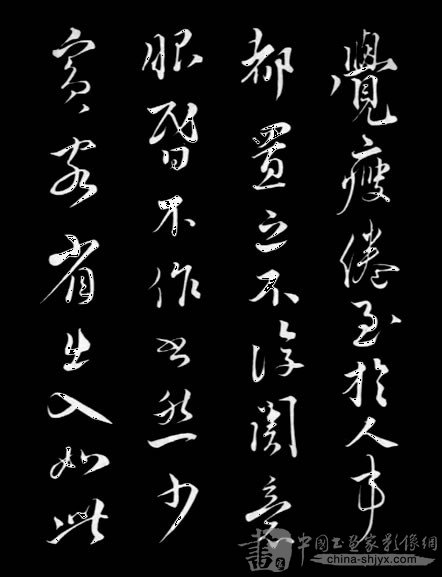 覺瘦倦至於人事
都置之不復關意
眼昏不作書然少
賓客省出入如此
書 中國书畫家影像網
china-shjyx.com